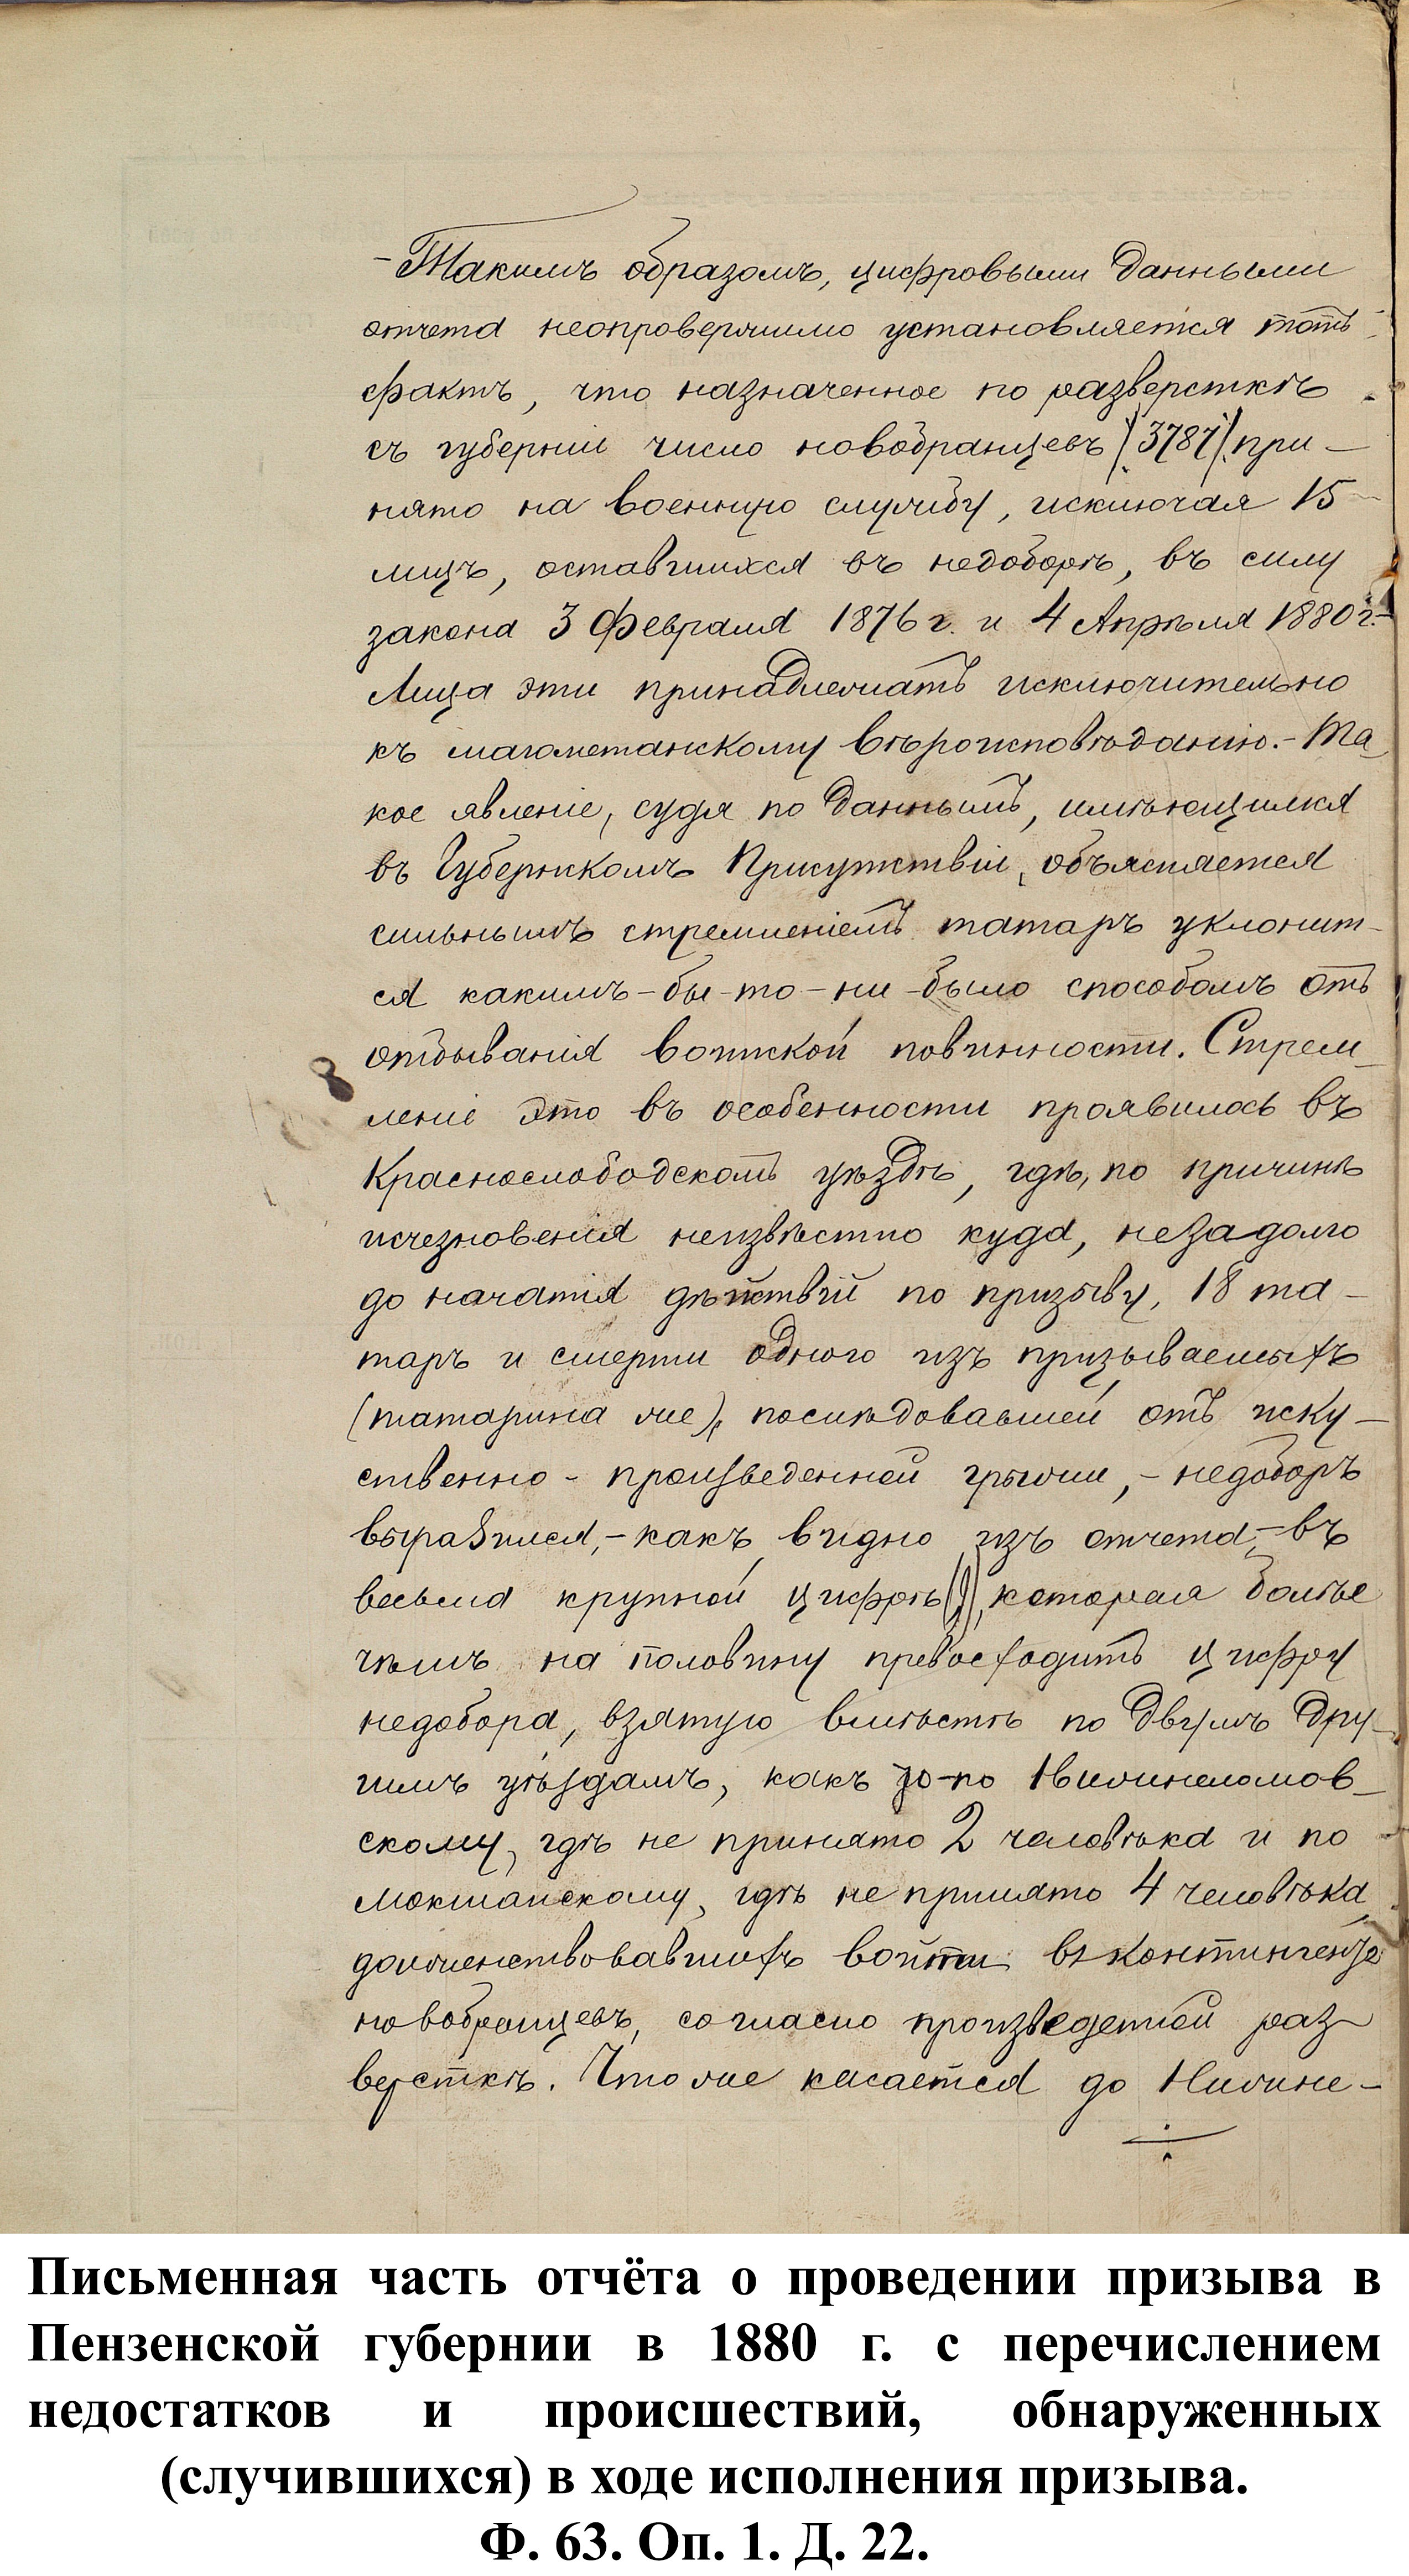 - Такимъ образомъ, цифровыми данными
отчета неопровержимо установляется тотъ
фактъ, что назначенное по разверсткѣ
съ губерніи число новобранцевъ (3787) при-
нято на военную службу, исключая 15
лицъ, оставшихся въ недоборѣ, въ силу
закона 3 Февраля 1876 г. и 4 Апрѣля 1880 г.-
Лица эти принадлежатъ исключительно
къ магометанскому вѣроисповѣданію.- Та-
кое явленіе, судя по даннымъ, имѣющимся
въ Губернскомъ Присутствіи, объясняется
сильнымъ стремленіемъ татаръ уклонит-
ся какимъ-бы-то-ни-было способомъ отъ
отбыванія воинской повинности. Стрем-
леніе это въ особенности проявилось въ
Краснослободскомъ уѣздѣ, гдѣ, по причинѣ
исчезновенія неизвѣстно куда, незадолго
до начатія дѣйствій по призыву, 18 та-
таръ и смерти одного изъ призываемыхъ
(татарина же), послѣдовавшей отъ иску-
ственно-произведенной грыжи, - недоборъ
выразился, - какъ видно изъ отчета, - въ
весьма крупной цифрѣ (9), которая болѣе
чѣмъ на половину превосходитъ цифру
недобора, взятую вмѣстѣ по двумъ дру-
гимъ уѣздамъ, какъ то-по Нижнеломов-
скому, гдѣ не принято 2 человѣка и по
Мокшанскому, гдѣ не принято 4 человѣка,
долженствовавшихъ войти въ контингентъ
новобранцевъ, согласно произведенной раз-
версткѣ. Что же касается до Нижне-
Письменная часть отчёта о проведении призыва в
Пензенской губернии в 1880 г. с перечислением
недостатков и происшествий, обнаруженных
(случившихся) в ходе исполнения призыва.
Ф. 63. Оп. 1. Д. 22.